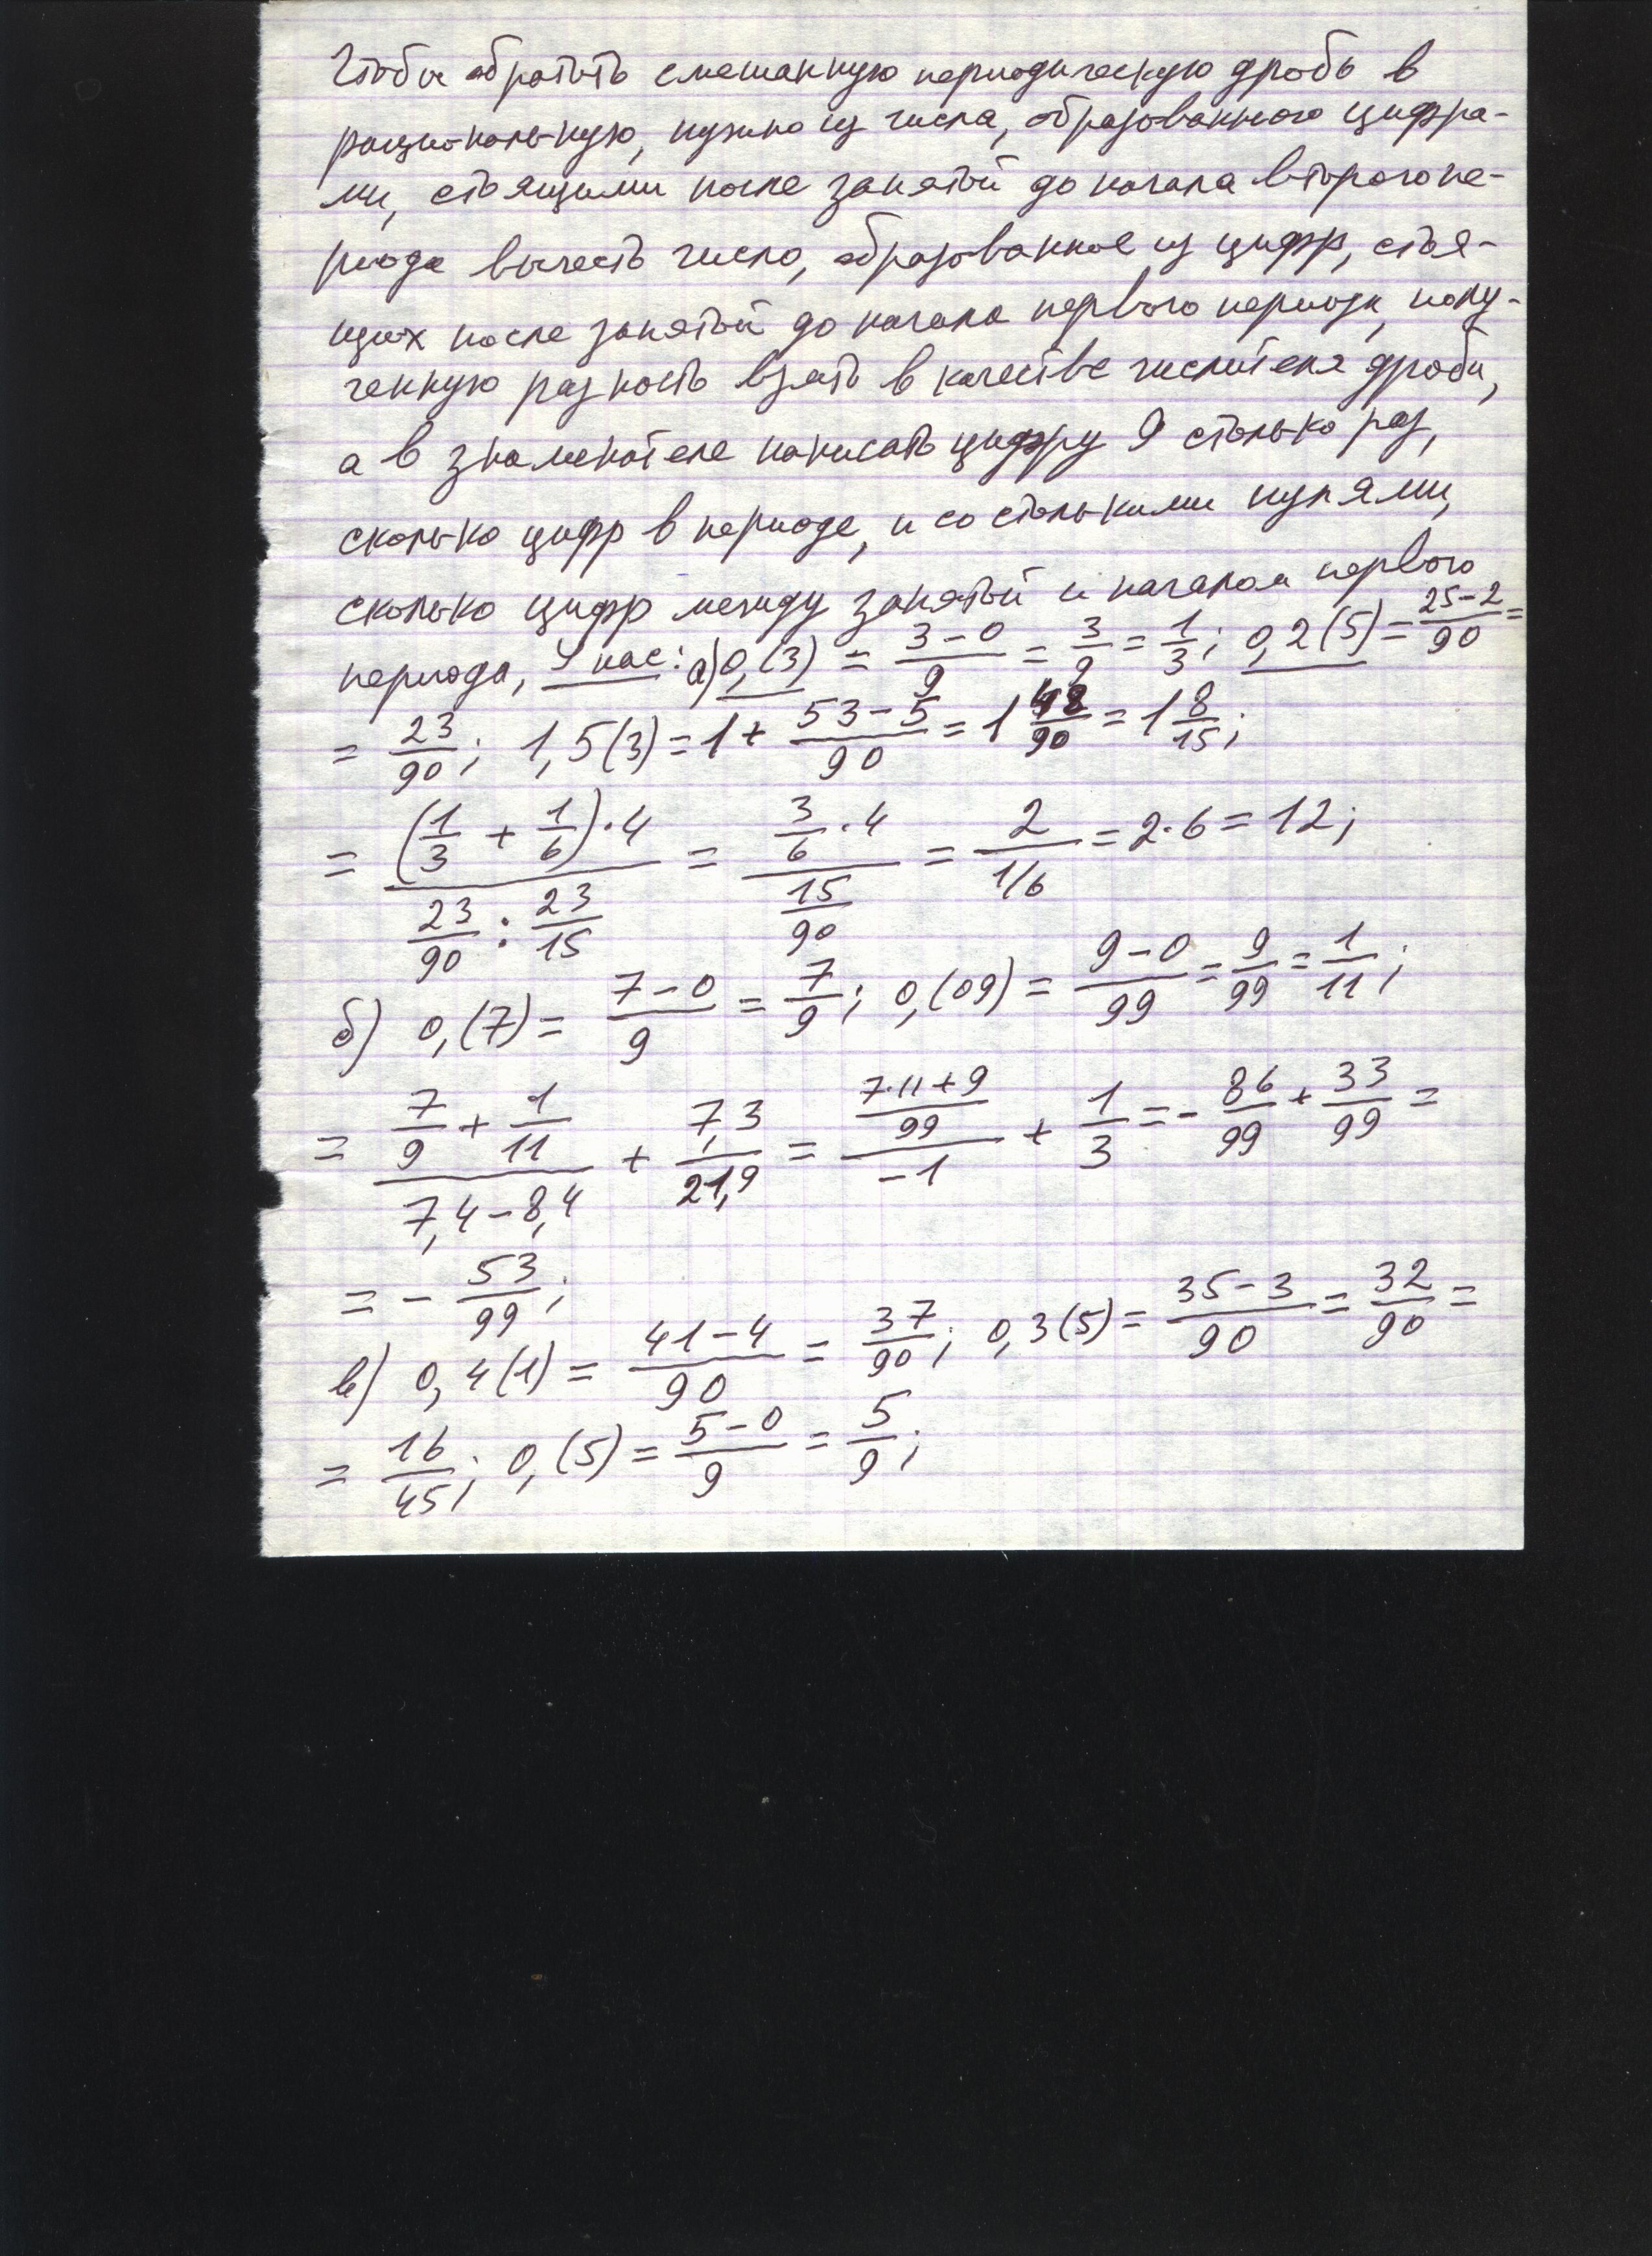 Чтобы обратить смешанную периодическую дробь в
рациональную, нужно из числа, образованного цифра-
ми, стоящими после запятой до начала второго пе-
риода вычесть число, образованное из цифр, стоя-
щих после запятой до начала первого периода, полу-
ченную разность взять в качестве числителя дроби,
а в знаменателе написать цифру 9 столько раз,
сколько цифр в периоде, и со столькими нулями,
сколько цифр между запятой и началом первого
периода, У нас: а) 0,(3) = (3-0)/9 = 3/9 = 1/3; 0,2(5) = (25-2)/90 =
= 23/90; 1,5(3) = 1 + (53-5)/90 = 1 48/90 = 1 8/15;
= ((1/3 + 1/6)·4)/(23/90 : 23/15) = (3/6·4)/(15/90) = 2/(1/6) = 2·6 = 12;
б) 0,(7) = (7-0)/9 = 7/9; 0,(09) = (9-0)/99 = 9/99 = 1/11;
= (7/9 + 1/11)/(7,4-8,4) + 7,3/21,9 = ((7·11+9)/99)/(-1) + 1/3 = - 86/99 + 33/99 =
= - 53/99;
в) 0,4(1) = (41-4)/90 = 37/90; 0,3(5) = (35-3)/90 = 32/90 =
= 16/45; 0,(5) = (5-0)/9 = 5/9;